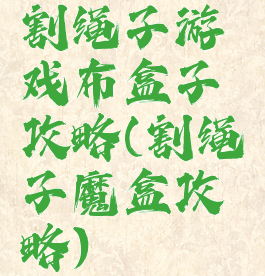 割绳子游
戏布盒子
攻略(割绳
子魔盒攻
略)